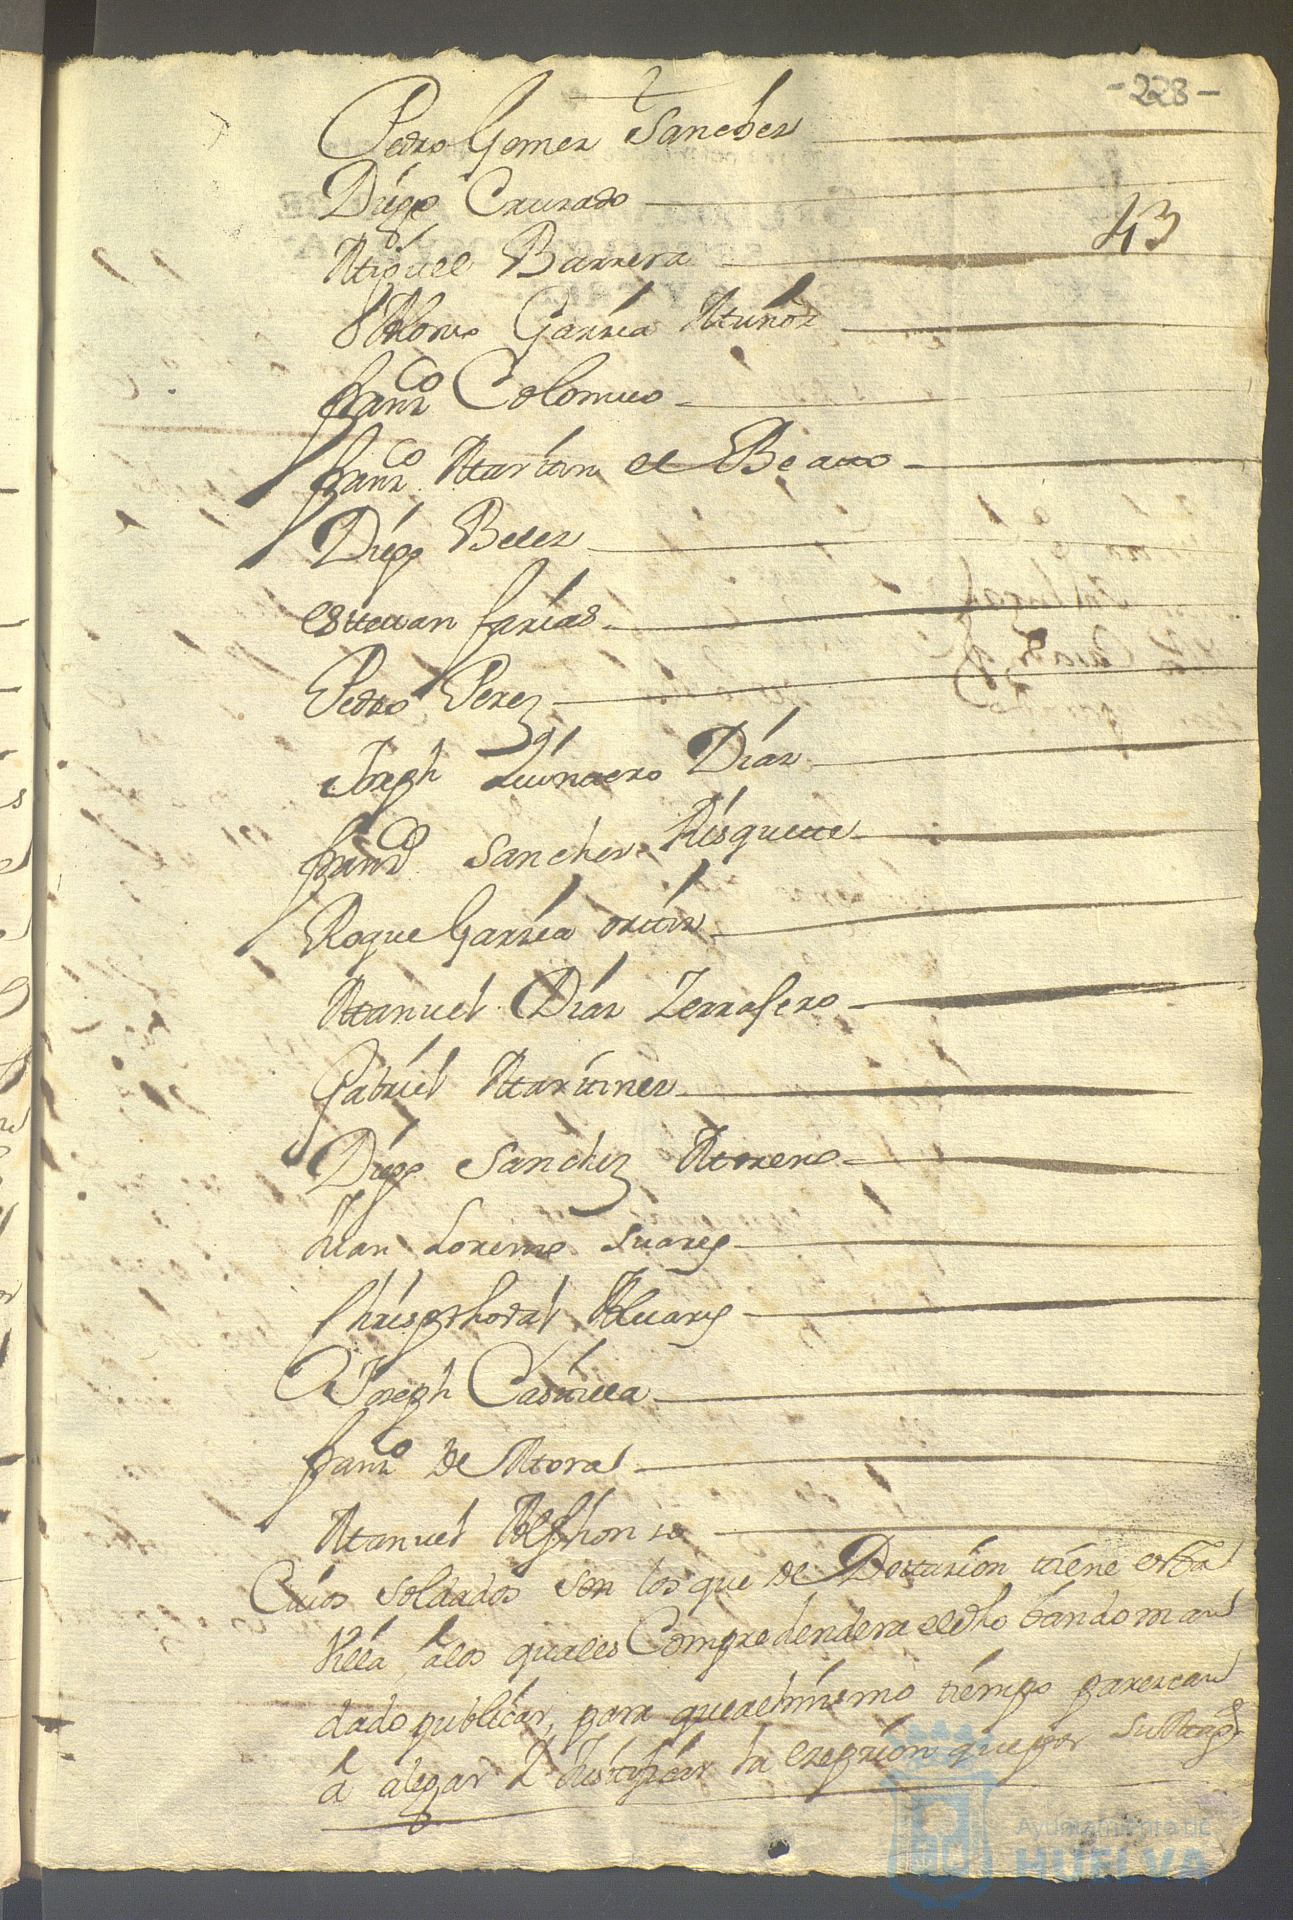 -228-
43
Pedro Gomez Sanchez
Diego Cruzado
Miguel Barrera
Alonso Garzia Muñoz
Fran.co Colomo
Fran.co Martin el Beato
Diego Belez
Estevan farias
Pedro Perez
Joseph Quintero Diaz
Fran.co Sanchez Risquette
Roque Garzia ortiz
Manuel Diaz Terrasero
Gabriel Martinez
Diego Sanchez Moreno
Juan Lorenzo Suares
Christhoval Alvares
Joseph Casilla
fran.co de Mora
Manuel Alfhonso
Cuios soldados son los que de Dottazion tiene esta
Villa, a los quales Compredendera el dho bando man
dado publicar, para que al mismo tiempo parezcan
a alegar Y Justificar la ezepzion que por
Ayuntamiento de
HUELVA